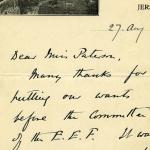 JER
27. Aug
Dear Miss Paterson,
Many thanks for
putting our wants
before the Committee
of the E.E.F. It was